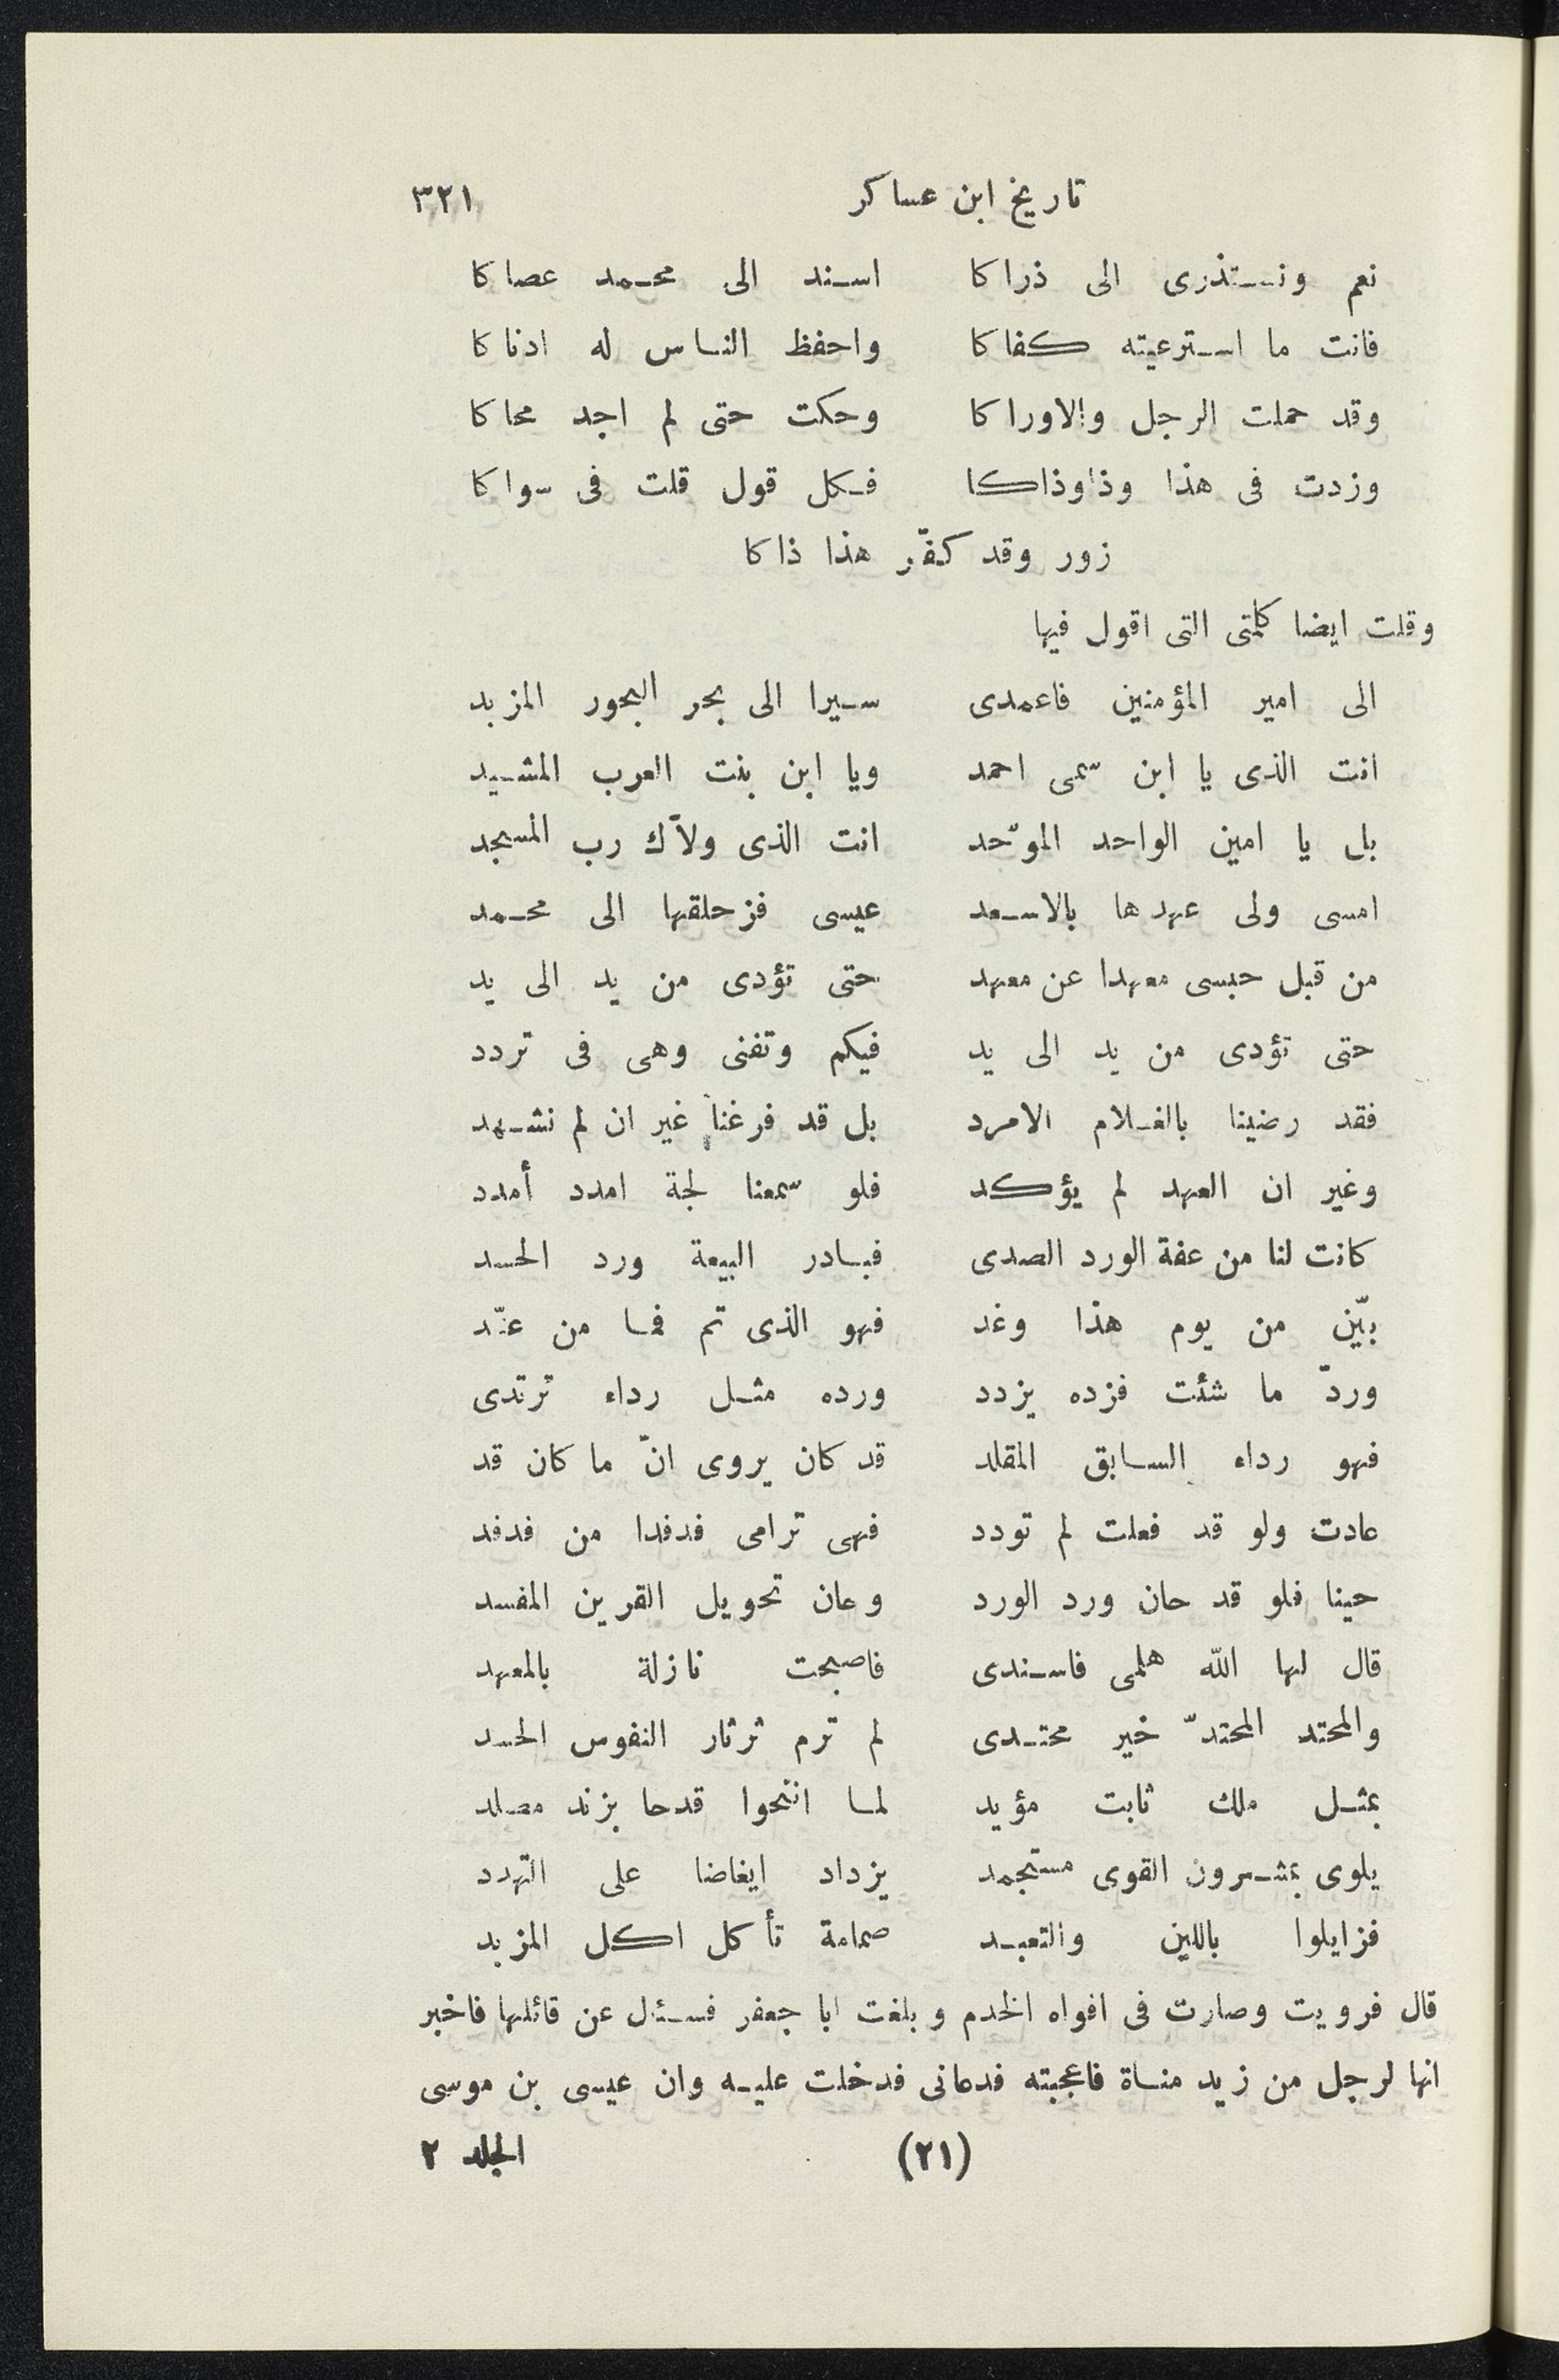 تاريخ ابن عساكر ٣٢١
نعم ونستذرى الى ذراكا اسند الى محمد عصاكا
فانت ما استرعيته كفاكا واحفظ الناس له ادناكا
وقد حملت الرجل والاوراكا وحكت حتى لم اجد محاكا
وزدت فى هذا وذا وذاكا فكل قول قلت فى سواكا
زور وقد كفّر هذا ذاكا
وقلت ايضا كلمتى التى اقول فيها
الى امير المؤمنين فاعمدى سيرا الى بحر البحور المزبد
انت الذى يا ابن سمى احمد ويا ابن بنت العرب المشيد
بل يا امين الواحد الموّحد انت الذى ولاّك رب المسجد
امسى ولى عهدها بالاسعد عيسى فزحلقها الى محمد
من قبل حبسى معهدا عن معهد حتى تؤدى من يد الى يد
حتى تؤدى من يد الى يد فيكم وتفنى وهى فى تردد
فقد رضينا بالغلام الامرد بل قد فرغنا غير ان لم نشهد
وغير ان العهد لم يؤكد فلو سمعنا لجة امدد أمدد
كانت لنا من عفة الورد الصدى فبادر البيعة ورد الحسد
بيّن من يوم هذا وغد فهو الذى تم فما من عنّد
وردّ ما شئت فزده يزدد ورده مثل رداء ترتدى
فهو رداء السابق المقلد قد كان يروى انّ ما كان قد
عادت ولو قد فعلت لم تودد فهى ترامى فدفدا من فدفد
حينا فلو قد حان ورد الورد وعان تحويل القرين المفسد
قال لها الله هلمى فاسندى فاصبحت نازلة بالمعهد
والمحتد المحتدّ خير محتدى لم ترم ثرثار النفوس الحسد
بمثل ملك ثابت مؤيد لما انتحوا قدحا بزند مصلد
يلوى بمشرون القوى مستجمد يزداد ايغاضا على التهدد
فزايلوا باللين والتعبد صمامة تأكل اكل المزبد
قال فرويت وصارت فى افواه الخدم وبلغت ابا جعفر فسئل عن قائلها فاخبر
انها لرجل من زيد مناة فاعجبته فدعانى فدخلت عليه وان عيسى بن موسى
(٢١) الجلد ٢